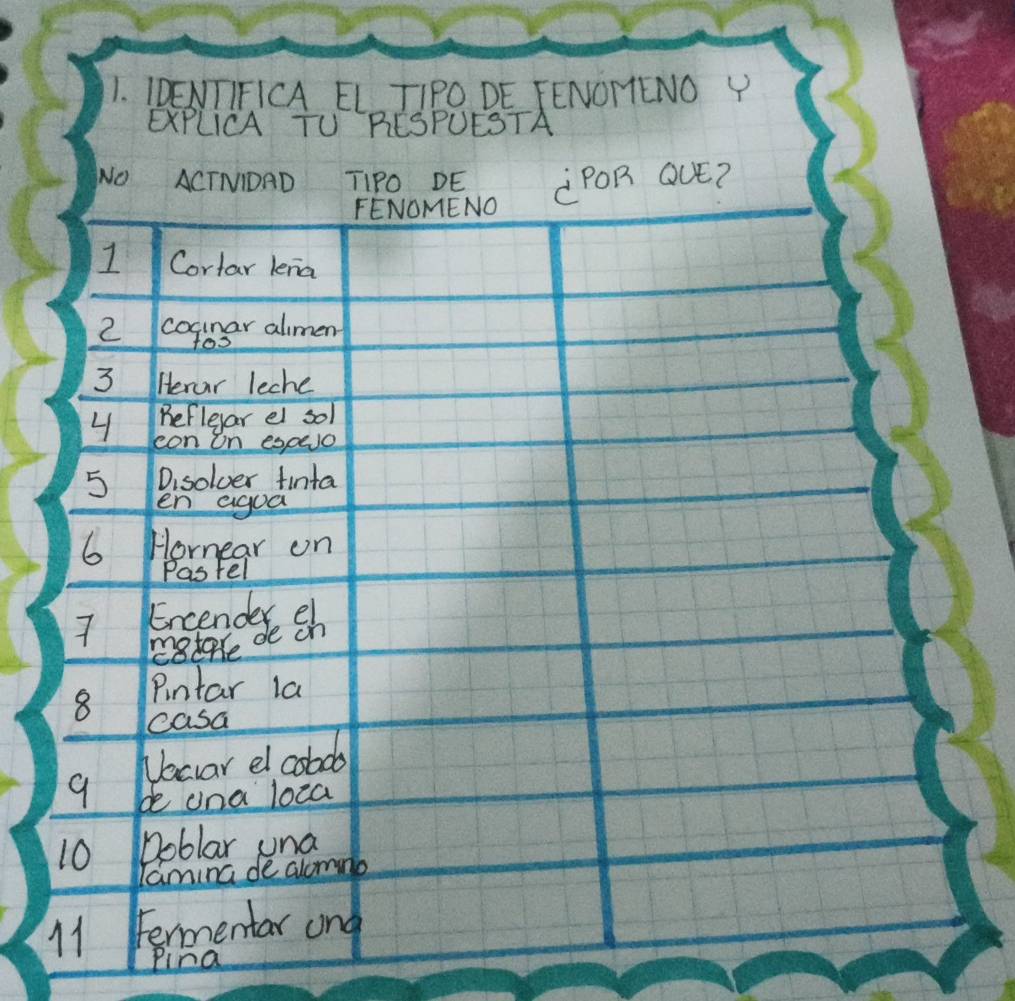 1. IDENTIFICA EL TIPO DE FENOMENO Y
EXPLICA TU RESPUESTA
NO ACTIVIDAD TIPO DE ¿POR QUE?
FENOMENO
1 Cortar leña
2 cocinar alimen
tos
3 Hervir leche
4 Reflejar el sol
con un espejo
5 Disolver tinta
en agua
6 Hornear un
Pastel
7 Encender el
motor de un
coche
8 Pintar la
casa
9 Vaciar el
de una loza
10 Doblar una
lamina de alumino
11 Fermentar una
Pina